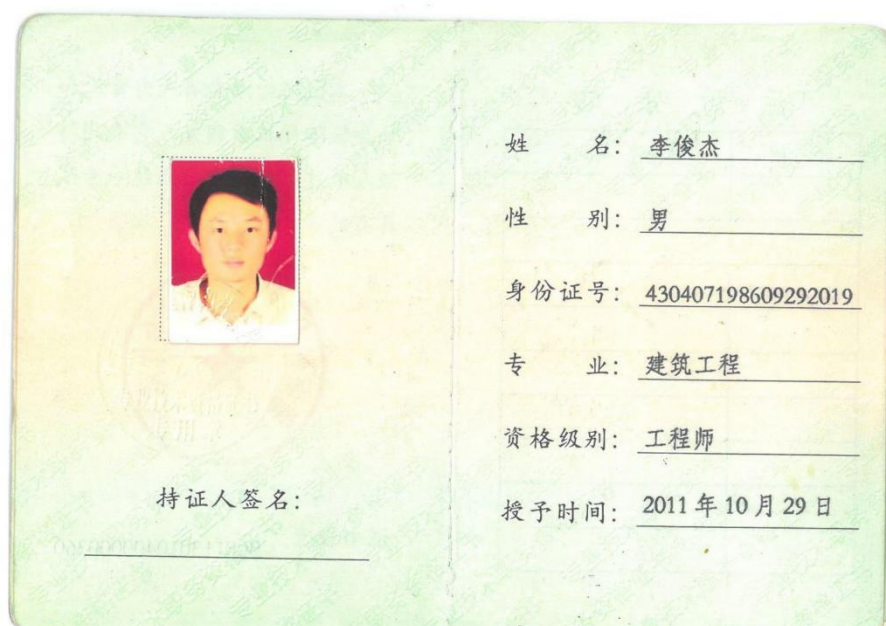 持证人签名：
姓 名： 李俊杰
性 别： 男
身份证号： 430407198609292019
专 业： 建筑工程
资格级别： 工程师
授予时间： 2011年10月29日